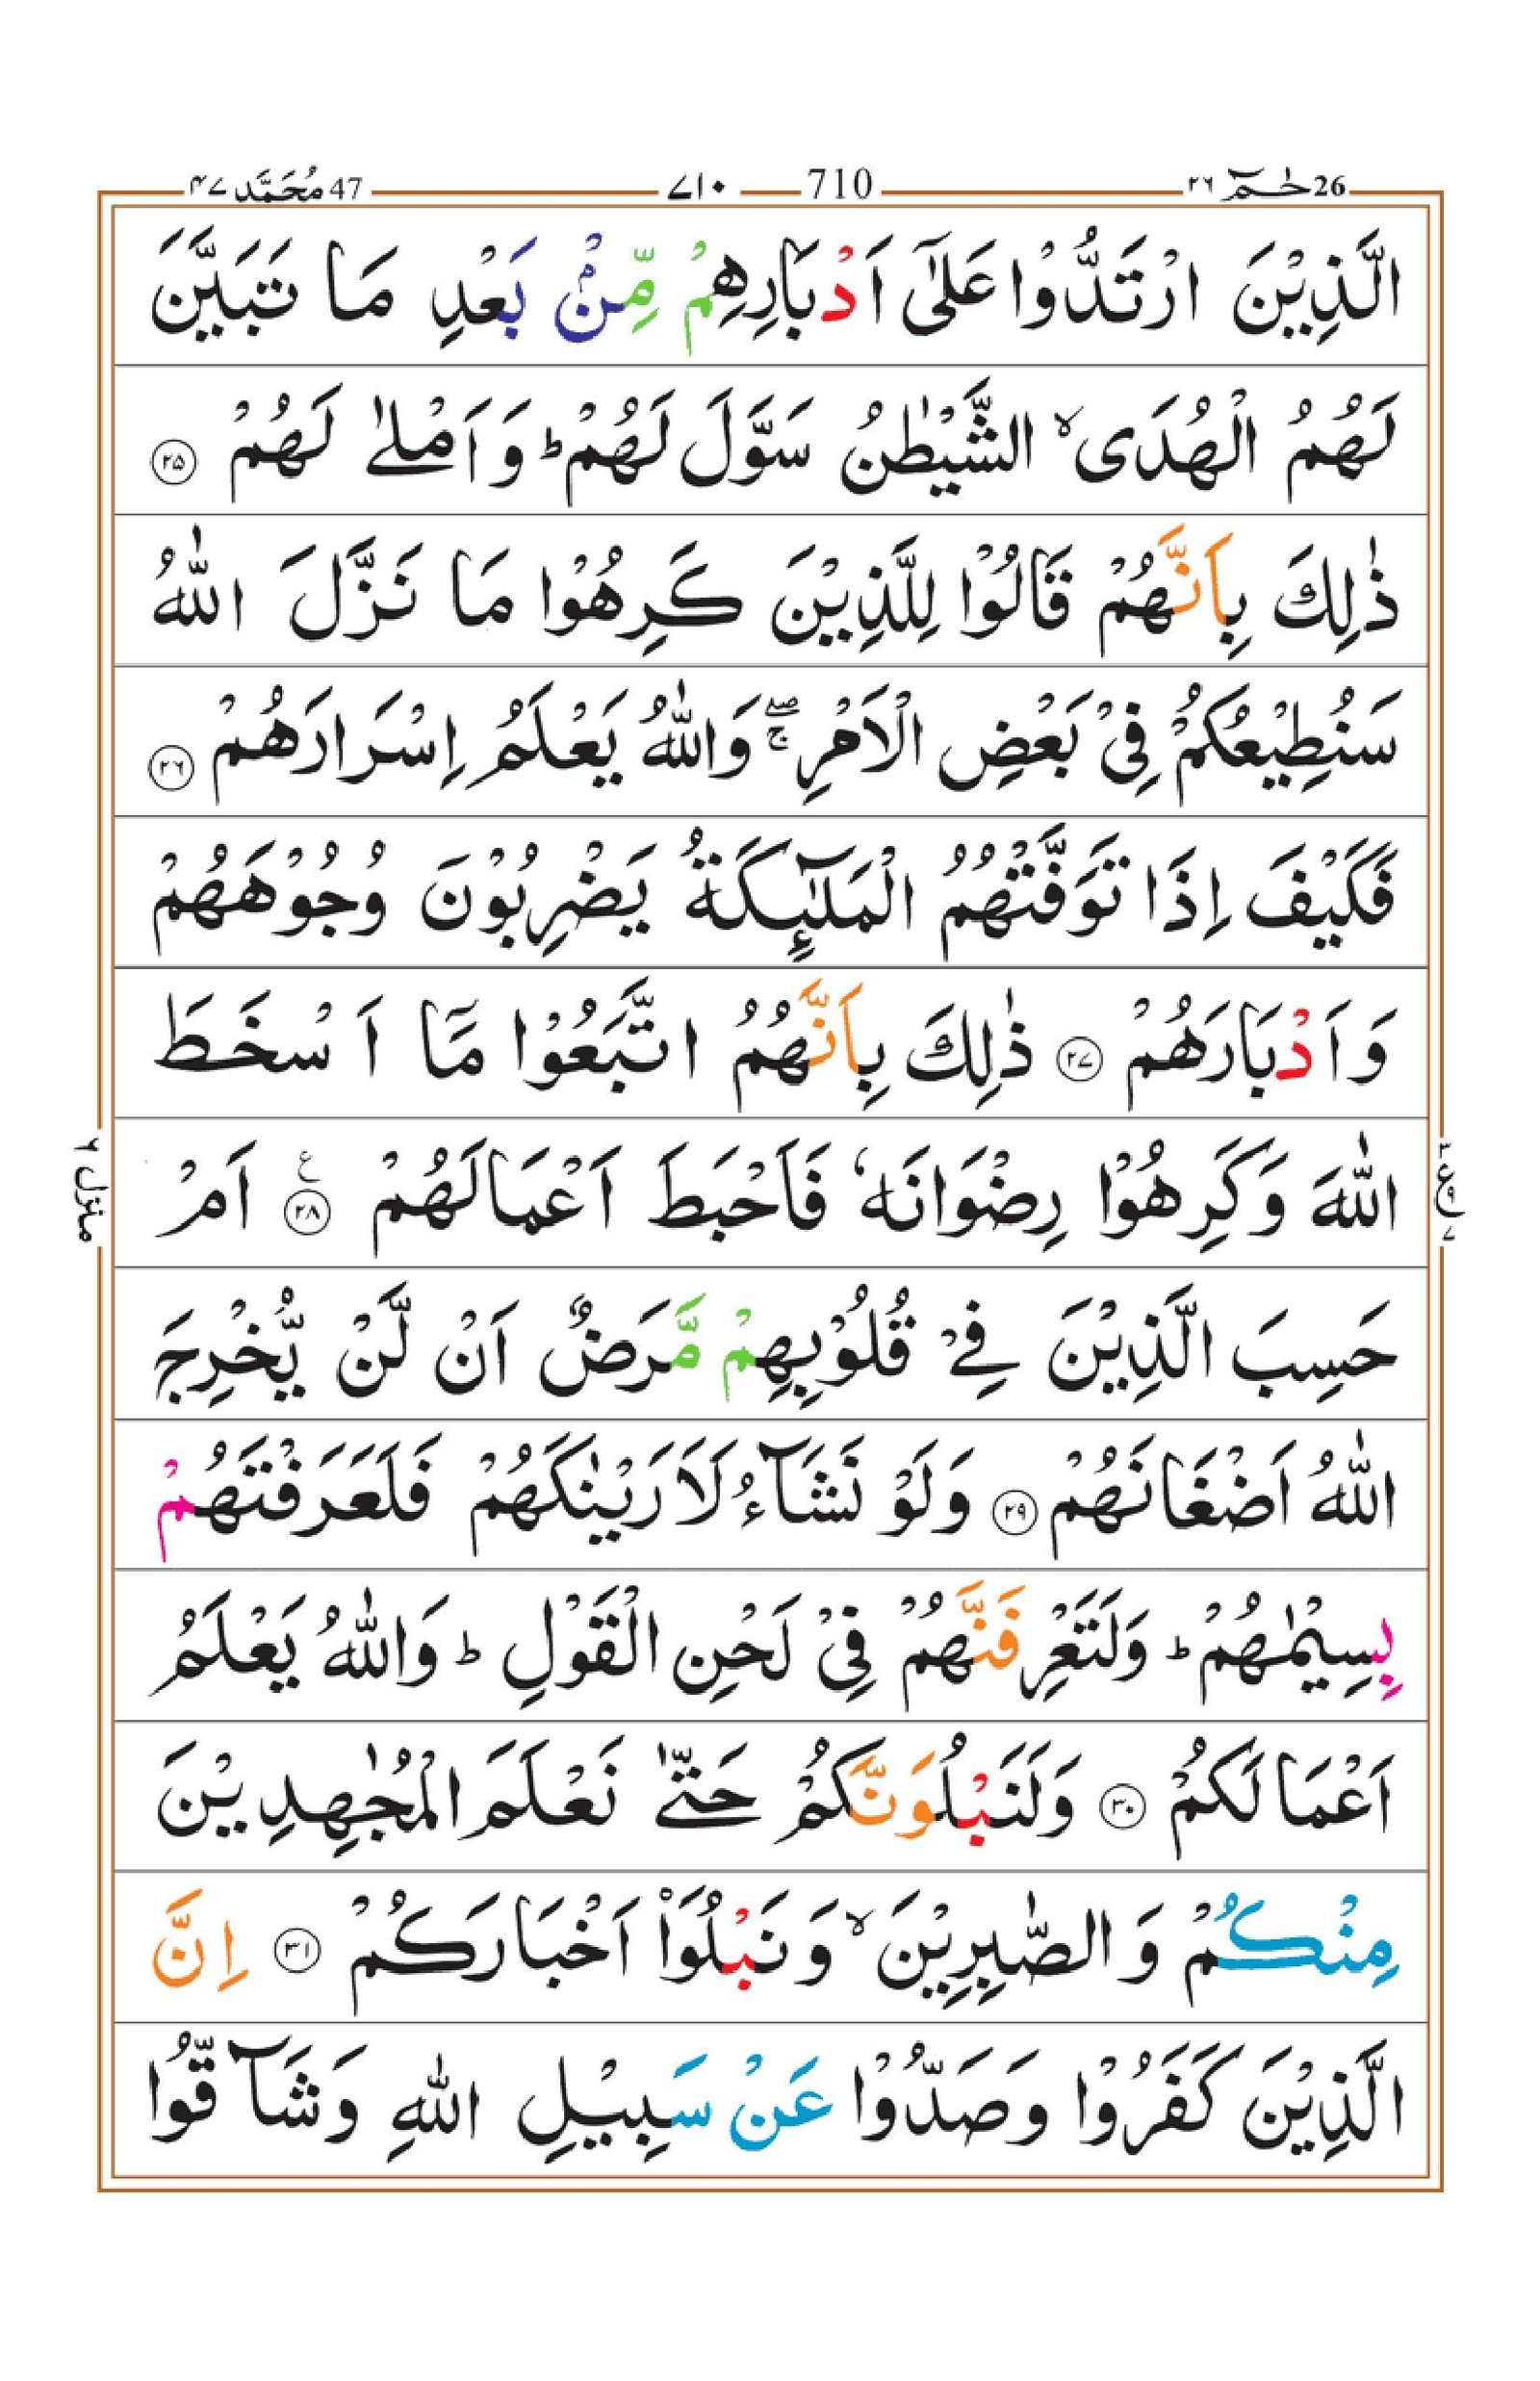 26 حٰمٓ ٢٦ 710 ٧١٠ 47 مُحَمَّد ٤٧
الَّذِيْنَ ارْتَدُّوْا عَلٰٓى اَدْبَارِهِمْ مِّنْۢ بَعْدِ مَا تَبَيَّنَ
لَهُمُ الْهُدَى ۙ الشَّيْطٰنُ سَوَّلَ لَهُمْ ؕ وَاَمْلٰى لَهُمْ ۝۲۵
ذٰلِكَ بِاَنَّهُمْ قَالُوْا لِلَّذِيْنَ كَرِهُوْا مَا نَزَّلَ اللّٰهُ
سَنُطِيْعُكُمْ فِىْ بَعْضِ الْاَمْرِ ۖۚ وَاللّٰهُ يَعْلَمُ اِسْرَارَهُمْ ۝۲۶
فَكَيْفَ اِذَا تَوَفَّتْهُمُ الْمَلٰٓئِكَةُ يَضْرِبُوْنَ وُجُوْهَهُمْ
وَاَدْبَارَهُمْ ۝۲۷ ذٰلِكَ بِاَنَّهُمُ اتَّبَعُوْا مَآ اَسْخَطَ
اللّٰهَ وَكَرِهُوْا رِضْوَانَهٗ فَاَحْبَطَ اَعْمَالَهُمْ ۝۲۸ ع اَمْ
منزل ٦
ع ٩ ٧
حَسِبَ الَّذِيْنَ فِىْ قُلُوْبِهِمْ مَّرَضٌ اَنْ لَّنْ يُّخْرِجَ
اللّٰهُ اَضْغَانَهُمْ ۝۲۹ وَلَوْ نَشَآءُ لَاَرَيْنٰكَهُمْ فَلَعَرَفْتَهُمْ
بِسِيْمٰهُمْ ؕ وَلَتَعْرِفَنَّهُمْ فِىْ لَحْنِ الْقَوْلِ ؕ وَاللّٰهُ يَعْلَمُ
اَعْمَالَكُمْ ۝۳۰ وَلَنَبْلُوَنَّكُمْ حَتّٰى نَعْلَمَ الْمُجٰهِدِيْنَ
مِنْكُمْ وَالصّٰبِرِيْنَ ۙ وَنَبْلُوَا۟ اَخْبَارَكُمْ ۝۳۱ اِنَّ
الَّذِيْنَ كَفَرُوْا وَصَدُّوْا عَنْ سَبِيْلِ اللّٰهِ وَشَآقُّوا